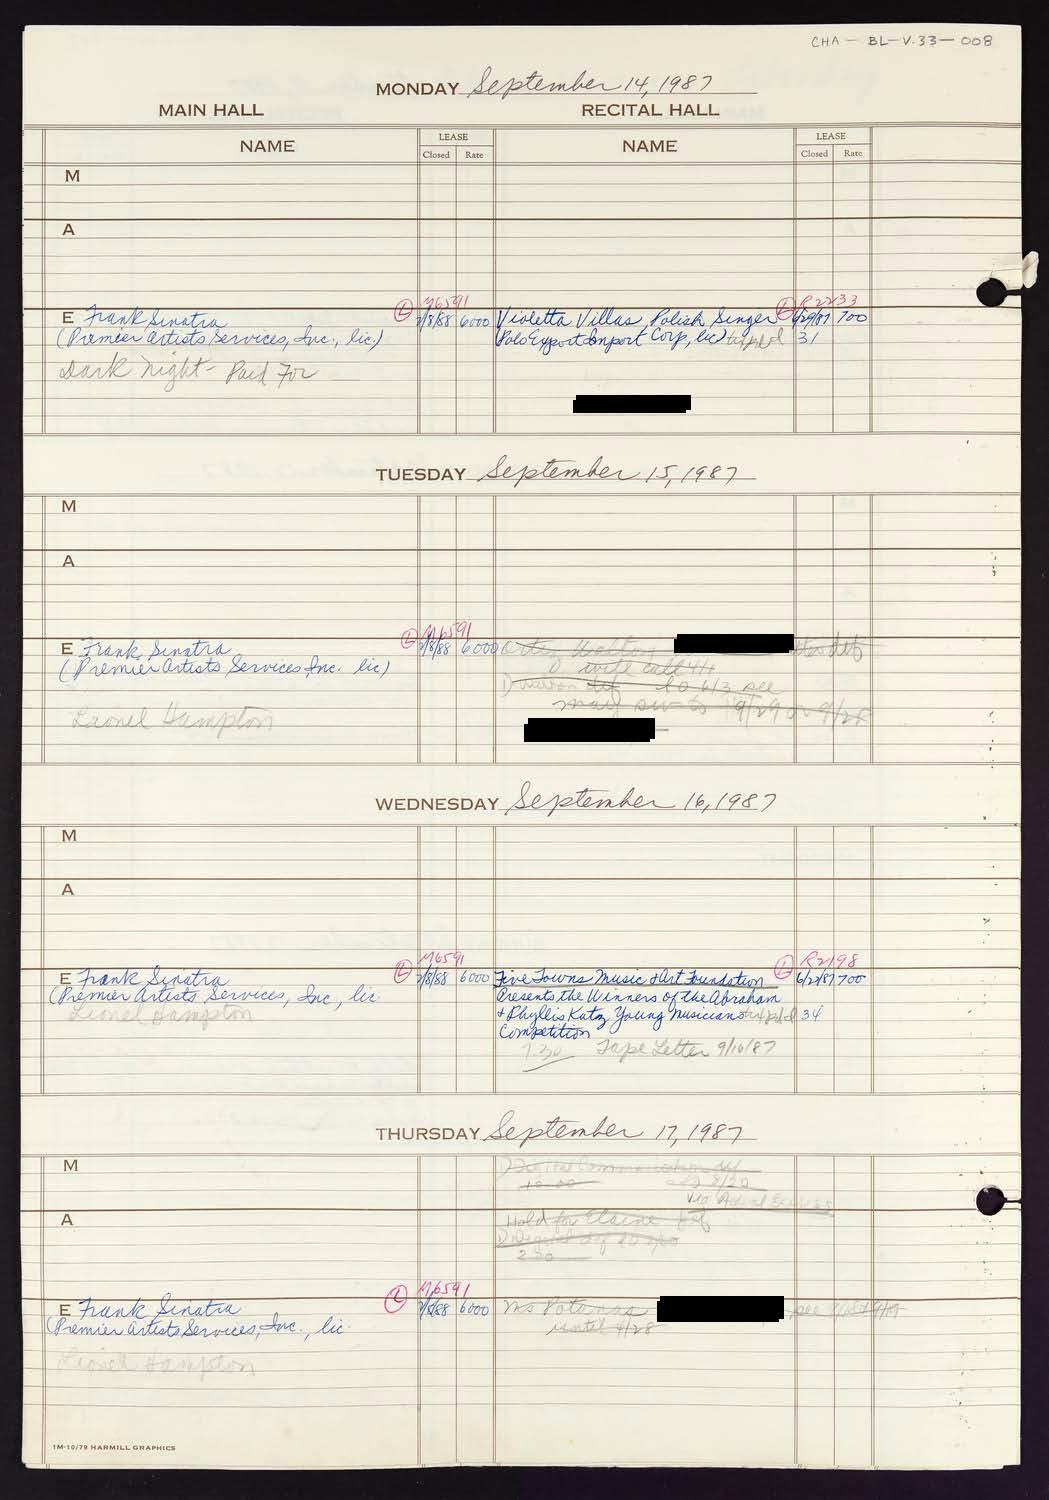 CHA - BL-V.33-008
MONDAY September 14, 1987
MAIN HALL RECITAL HALL
NAME LEASE Closed Rate NAME LEASE Closed Rate
M
A
L M6591 L R2233
E Frank Sinatra 2/8/88 6000 Violetta Villas, Polish Singer 6/29/87 700
(Premier Artists Services, Inc., lic) (Polo Export Import Corp, lic) 31
Dark Night - Paid For
TUESDAY September 15, 1987
M
A
L M6591
E Frank Sinatra 2/8/88 6000
(Premier Artists Services, Inc. lic) wife call 4/4
to 6/3 see
Lionel Hampton 9/29 or 9/28
WEDNESDAY September 16, 1987
M
A
L M6591 L R2198
E Frank Sinatra 2/8/88 6000 Five Towns Music & Art Foundation 6/22/87 700
(Premier Artists Services, Inc., lic Presents the Winners of the Abraham
Lionel Hampton & Phyllis Katz Young Musicians 34
Competition
7:30 Tape Letter 9/16/87
THURSDAY September 17, 1987
M
A Hold for Elaine
2:30
L M6591
E Frank Sinatra 2/8/88 6000 Ms
(Premier Artists Services, Inc., lic until 4/28
Lionel Hampton
1M-10/79 HARMILL GRAPHICS